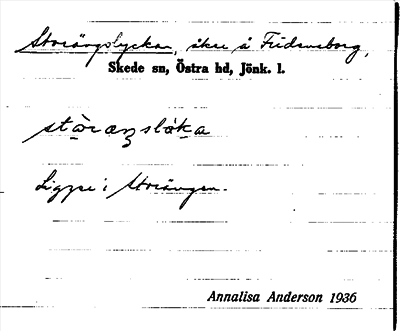 Storängslyckan, åker å Fridensborg,
Skede sn, Östra hd, Jönk. l.
Ligger i Storängen.
Annalisa Anderson 1936